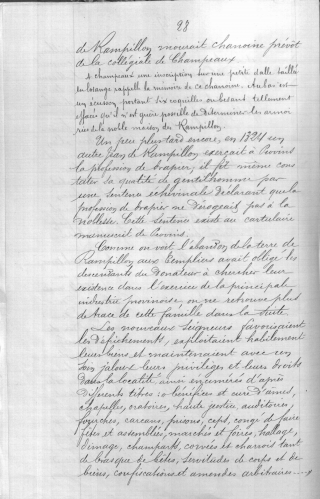 28
de Rampillon mourait chanoine prévôt
de la collégiale de Champeaux.
A champeaux une inscription sur une petite dalle taillé
en losange rappelle la memoire de ce chanoine. Au bas est
un écusson portant dix coquilles ou besans tellement
effacés qu'il n'est guère possible de determiner les armoi
ries de la noble maison de Rampillon.
Un peu plus tard encore, en 1324 un
autre Jean de Rampillon exerçait à Provins
la profession de drapier, il fit même cons
tater sa qualité de gentilhomme par
une sentence échevinale déclarant que la
profession de drapier ne dérogeait pas à la
noblesse. Cette sentence existe au cartulaire
municipal de Provins.
Comme on voit l'abandon de la terre de
Rampillon aux Templiers avait obligé les
descendants du Donateur à chercher leur
existence dans l'exercice de la principale
industrie provinoise, on ne retrouve plus
de trace de cette famille dans la suite.
Les nouveaux Seigneurs favorisaient
les défrichements, exploitaient habilement
leurs biens et maintenaient avec un
soin jaloux leurs privilèges et leurs droits
dans la localité, ainsi énumérés d'après
différents titres: bénéfices et cure d'âmes,
chapelles, oratoires, haute justice, auditoires,
fourches, carcans, prisons, ceps, congé de foire,
fêtes et assemblées, marchés et foires, hallage,
dimage, champarts, corvées et charrois tant
de bras que de bêtes, servitudes de corps et de
biens, confiscations et amendes arbitraires